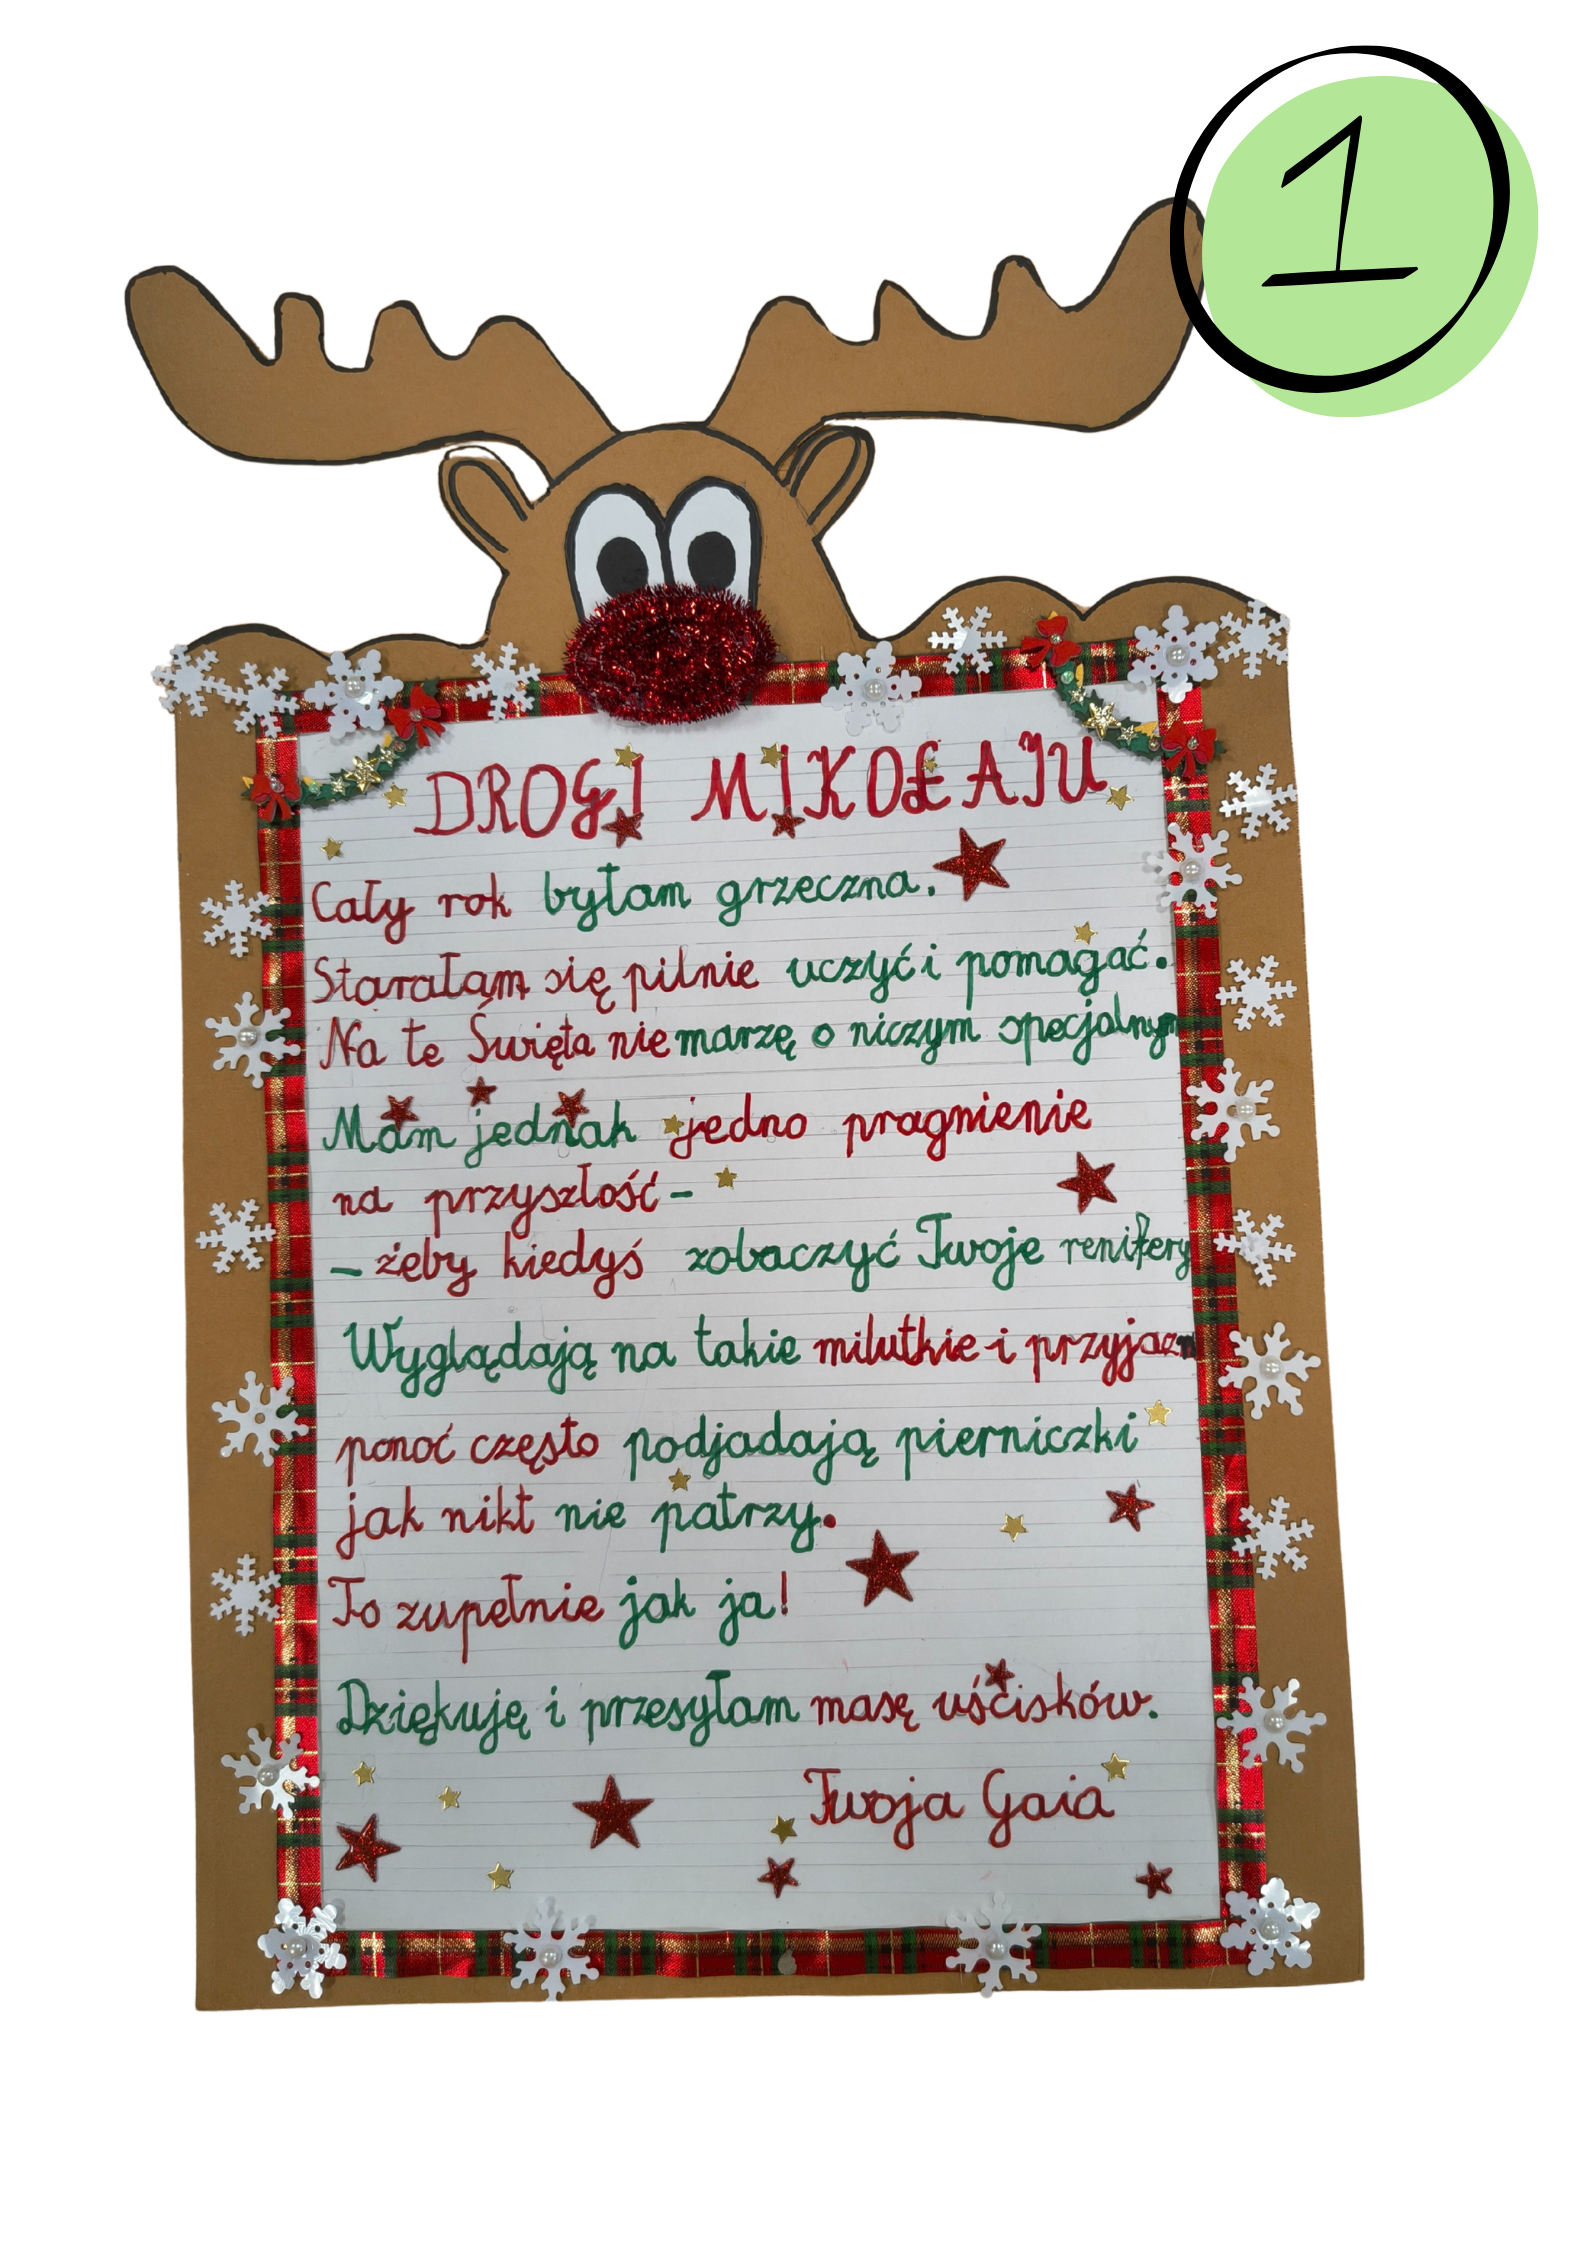 1
DROGI MIKOŁAJU
Cały rok byłam grzeczna.
Starałam się pilnie uczyć i pomagać.
Na te Święta nie marzę o niczym specjalnym
Mam jednak jedno pragnienie
na przyszłość -
- żeby kiedyś zobaczyć Twoje renifery
Wyglądają na takie milutkie i przyjazn
ponoć często podjadają pierniczki
jak nikt nie patrzy.
To zupełnie jak ja!
Dziękuję i przesyłam masę uścisków.
Twoja Gaia